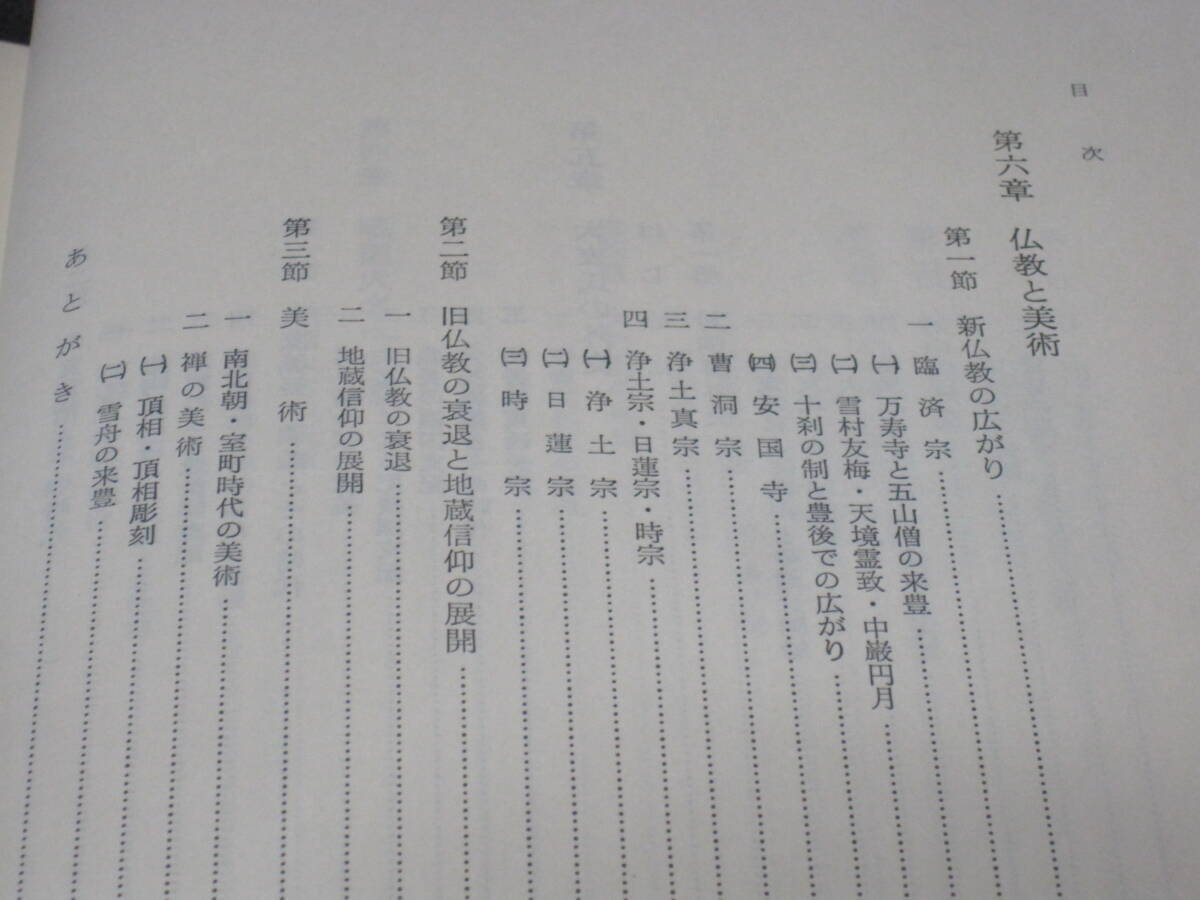 目次
第六章 仏教と美術
第一節 新仏教の広がり
一 臨済宗
㈠ 万寿寺と五山僧の来豊
㈡ 雪村友梅・天境霊致・中巌円月
㈢ 十刹の制と豊後での広がり
㈣ 安国寺
二 曹洞宗
三 浄土真宗
四 浄土宗・日蓮宗・時宗
㈠ 浄土宗
㈡ 日蓮宗
㈢ 時宗
第二節 旧仏教の衰退と地蔵信仰の展開
一 旧仏教の衰退
二 地蔵信仰の展開
第三節 美術
一 南北朝・室町時代の美術
二 禅の美術
㈠ 頂相・頂相彫刻
㈡ 雪舟の来豊
あとがき